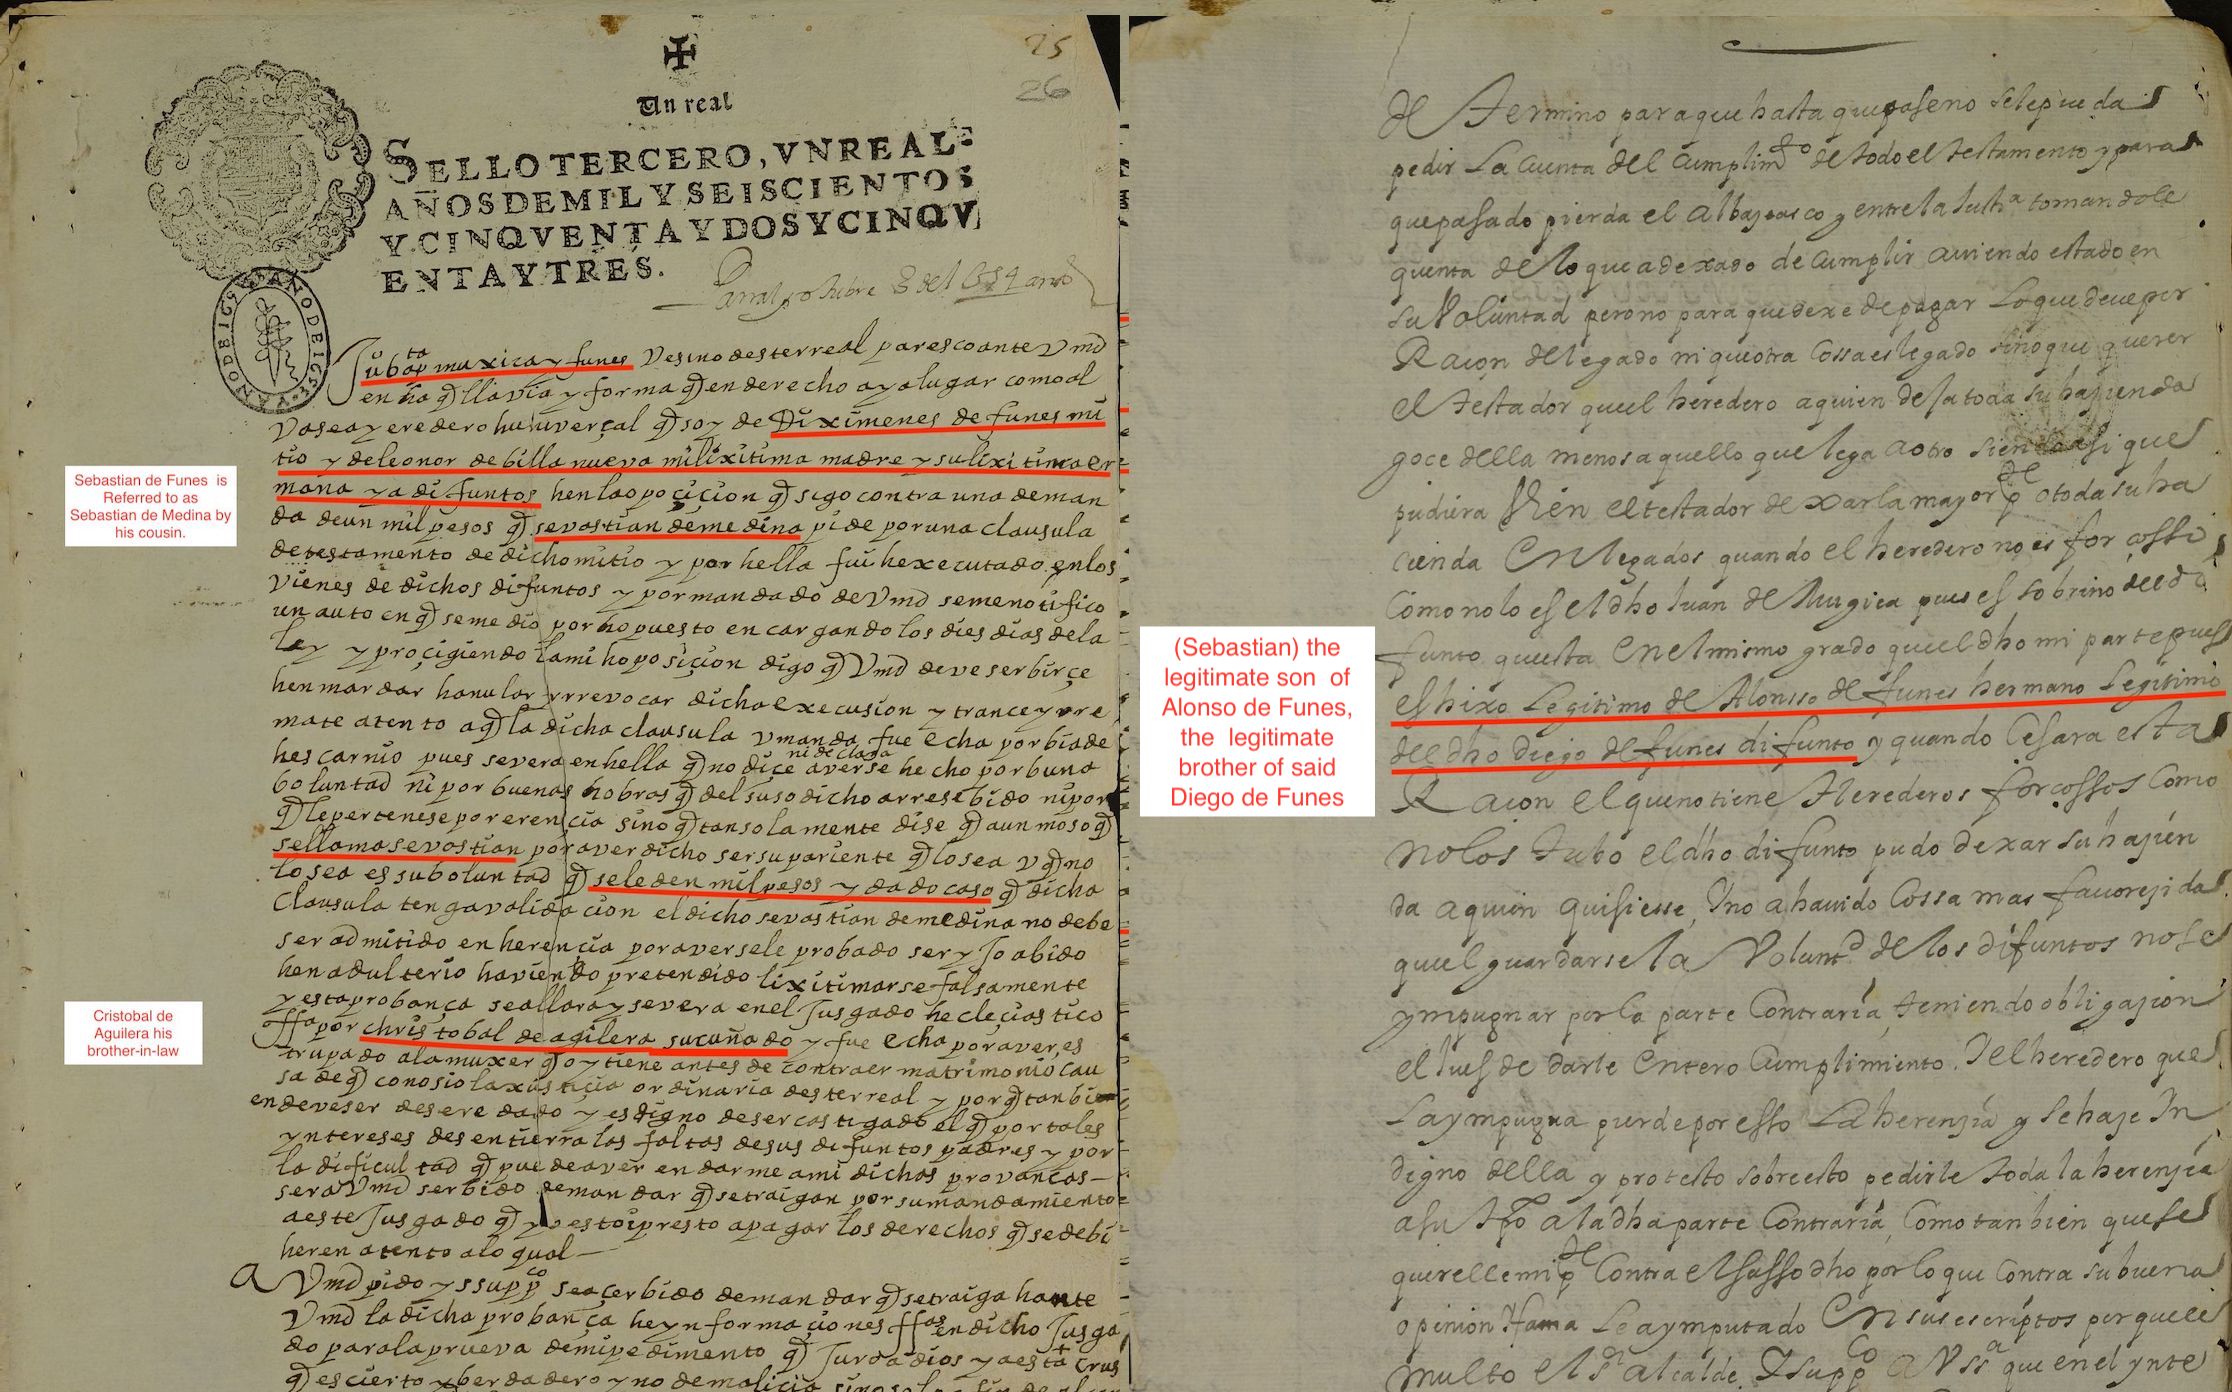 25
26
Un real
SELLO TERCERO, VN REAL,
AÑOS DE MIL Y SEISCIENTOS
Y CINQVENTA Y DOS Y CINQV
ENTA Y TRES.
Parral octubre 8 del 654 años
Ju bapta muxica y funes Vesino desterreal paresco ante Vmd
en la q̃lla via y forma q̃ en derecho aya lugar como al
vasea y eredero huniverçal q̃ soy de Di ximenes de funes mi
tio y de leonor de billa nueva mi lixitima madre y su lixitima er
mana ya difuntos hen la opoçiçion q̃ sigo contra una deman
da de un mil pesos q̃ sevastian de medina pide por una clausula
de testamento de dicho mi tio y por hella fui hexecutado en los
vienes de dichos difuntos y por mandado de Vmd se me notifico
un auto en q̃ se me dio por hopuesto encargandolos dies dias de la
ley y proçigiendo la mi hoposiçion digo q̃ Vmd deve serbirçe
hen mandar hanular y rrevocar dicha execusion y trance y rre
mate atento a q̃ la dicha clausula y manda fue echa por bia de
hescarnio pues severa en hella q̃ no diçe ni declara averse hecho por buna
boluntad ni por buenas hobras q̃ del susodicho arresebido ni por
q̃ le pertenese por erencia sino q̃ tan solamente dise q̃ a un moso q̃
se llama sevastian por aver dicho ser su pariente q̃ lo sea y q̃ no
lo sea es su boluntad q̃ se le den mil pesos y dado caso q̃ dicha
Clausula tenga validaçion el dicho sevastian de medina no debe
ser admitido en herençia por aversele probado ser yjo abido
hen adulterio haviendo pretendido lixitimarse falsamente
y esta probança se allara y severa en el Jusgado hecleçiastico
ffa por christobal de agilera su cuñado y fue echa por aver es
trupado a la muxer q̃ oy tiene antes de contraer matrimonio cau
sa de q̃ conosio la xusticia ordinaria desterreal y por q̃ tanbien
en deve ser deseredado y es digno de ser castigado el q̃ por tales
yntereses desentierra las faltas de sus difuntos padres y por
la dificultad q̃ puede aver en darme a mi dichas provanças
sera Vmd serbido de mandar q̃ se traigan por su mandamiento
a este Jusgado q̃ yo estoi presto a pagar los derechos q̃ se debi
heren atento a lo qual
A Vmd pido y ssuppco sea çerbido de mandar q̃ se traiga hante
Vmd la dicha probança he ynformaçiones ffas en dicho Jusga
do para la prueva de mi pedimento q̃ Jur a dios y a esta crus
q̃ es cierto y berdadero y no de malicia
Sebastian de Funes is
Referred to as
Sebastian de Medina by
his cousin.
Cristobal de
Aguilera his
brother-in-law
de termino para que hasta que pase no se le pueda
pedir La cuenta del cumplimto de todo el testamento y para
que pasado pierda el albaseasco y entre la Justa tomandole
quenta de lo que a dexado de cumplir aviendo estado en
su Voluntad pero no para que dexe de pagar Lo que deve por
Raçon de legado ni que otra Cossa es legado sino que querer
el testador que el heredero a quien desa toda su hazienda
goce della menos aquello que lega a otro siendo asi que
pudiera Bien el testador dexar la mayor pte o toda su ha
cienda En legados quando el heredero no es forcosso
Como no lo es el dho Juan de Mugica pues es sobrino del di
funto que esta En el mismo grado que el dho mi parte pues
es hixo Legitimo de Alonsso de funes hermano Legitimo
del dho diego de funes difunto y quando Cesara esta
Raçon el que no tiene Herederos forcossos Como
no los tubo el dho difunto pudo dexar su hazien
da a quien quisiesse, Y no a havido Cossa mas favorezida
que el guardarse la Voluntd de los difuntos no se
ympugnar por la parte Contraria, teniendo obligazion
el Jues de darle Entero Cumplimiento. Y el heredero que
La ympugna pierde por esso La herenzia y se haze Yn
digno della y protesto sobre esto pedirle toda la herenzia
a su tpo a la dha parte Contraria, Como tanbien que se
querelle mi pte Contra el susso dho por lo que Contra su buena
opinion y fama Le a ymputado En sus escriptos por que le
multo el sr alcalde. Y suppco a Vssa que en el ynte
(Sebastian) the
legitimate son of
Alonso de Funes,
the legitimate
brother of said
Diego de Funes